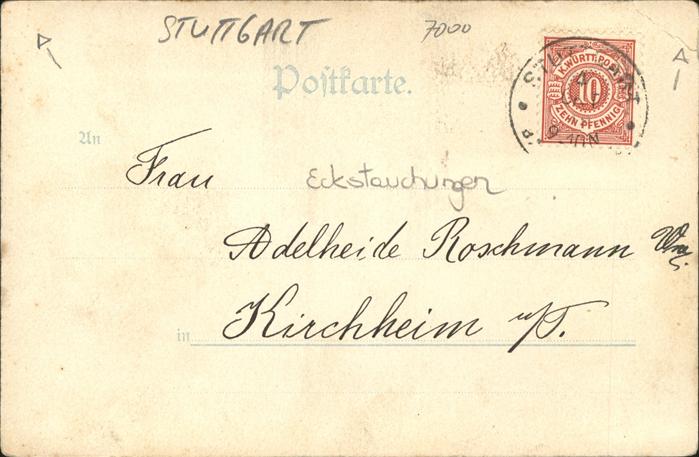 STUTTGART 7000
Postkarte.
K. WÜRTT. POST
10
ZEHN PFENNIG
STUTTGART
4
OKT
An
Frau
Eckstauchungen
Adelheide Roschmann Wwe.
in Kirchheim u/T.